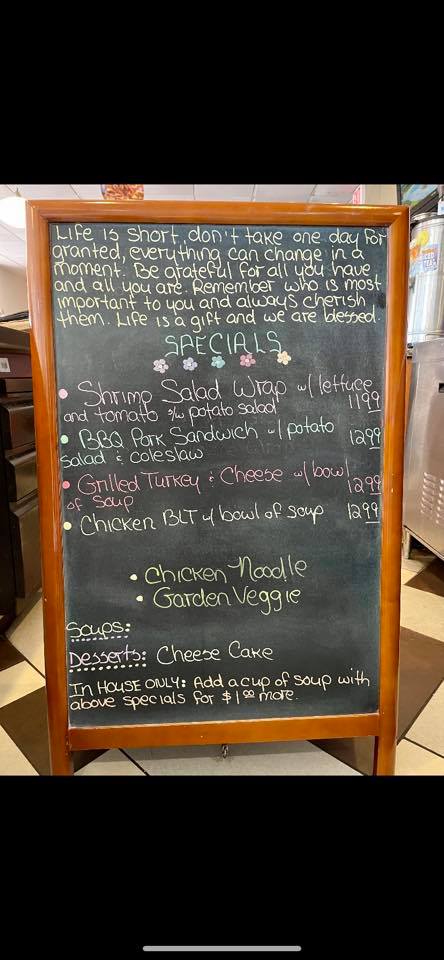 Life is short, don't take one day for
granted, everything can change in a
moment. Be grateful for all you have
and all you are. Remember who is most
important to you and always cherish
them. Life is a gift and we are blessed.
SPECIALS
• Shrimp Salad Wrap w/ lettuce
and tomato s/w potato salad 11 99
• BBQ Pork Sandwich w/ potato 12 99
salad & coleslaw
• Grilled Turkey & Cheese w/ bowl 12 99
of soup
• Chicken BLT w/ bowl of soup 12 99
• Chicken Noodle
• Garden Veggie
Soups:
Desserts: Cheese Cake
In House Only: Add a cup of soup with
above specials for $1 00 more.
ICED
TEA